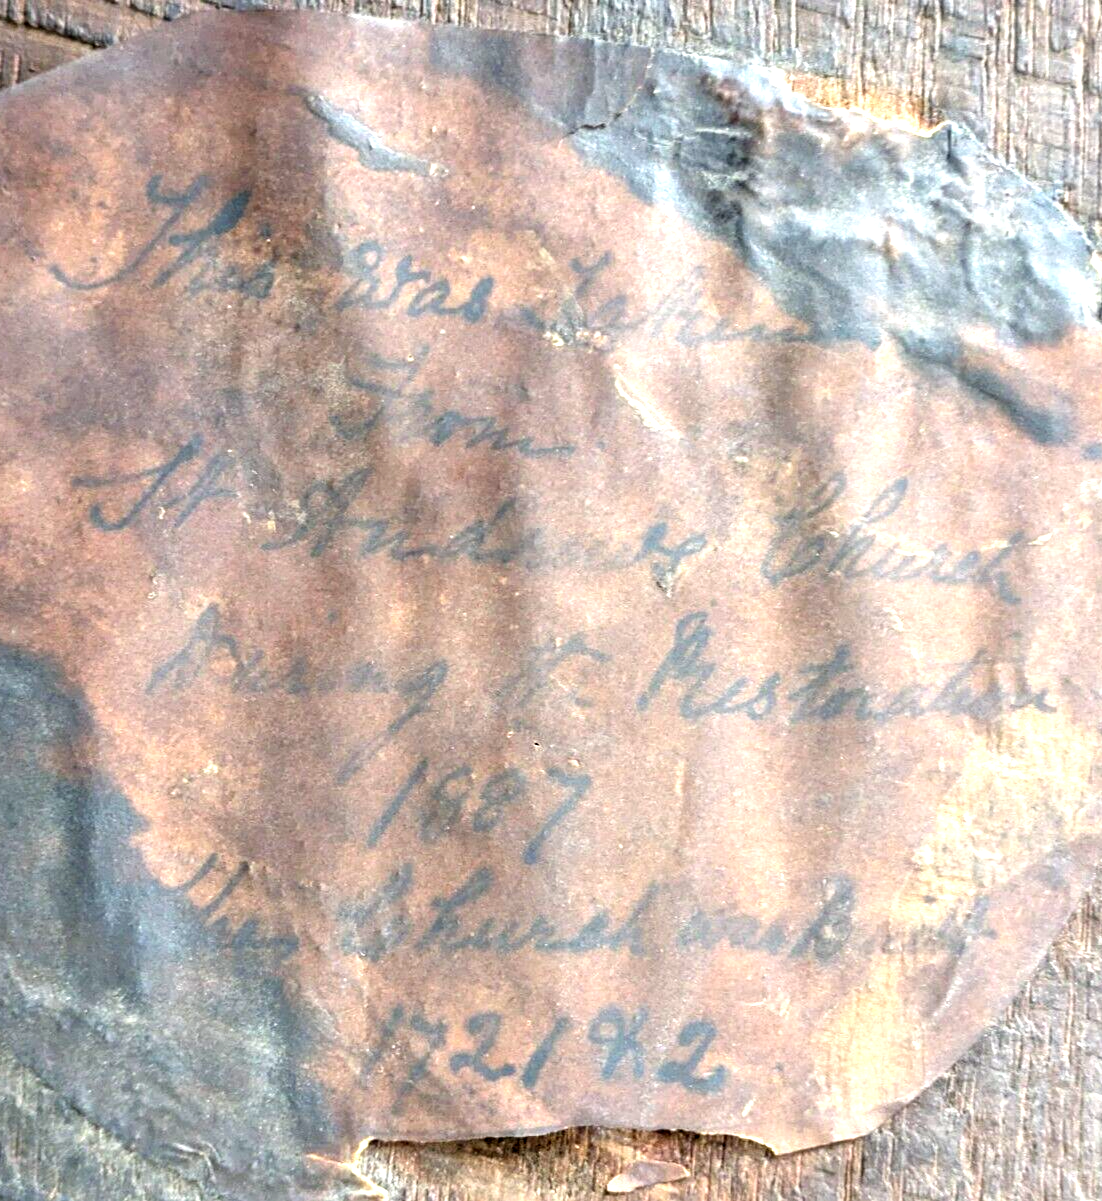 This was Taken
From
St Andrews Church
During it Restoration
1887
This Church was Built
1721 & 2